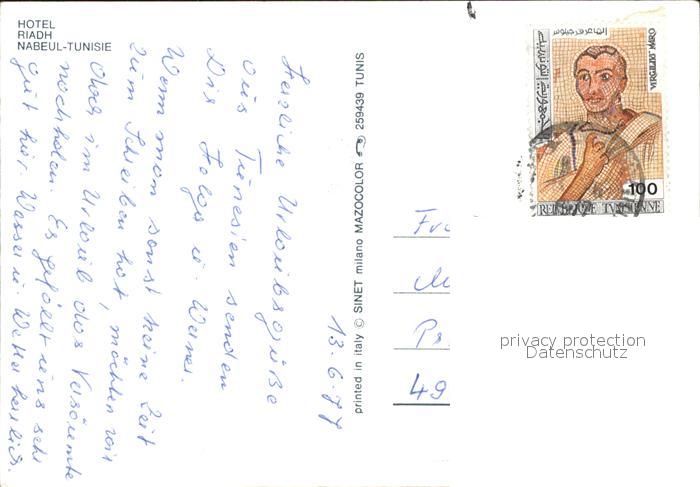 HOTEL
RIADH
NABEUL-TUNISIE
13.6.77
Herzliche Urlaubsgrüße
aus Tunesien senden
Dir Helga u. Werner.
Wenn man sonst keine Zeit
zum Schreiben hat, möchten wir
das im Urlaub das Versäumte
nachholen. Es gefällt uns sehr
gut hier. Wasser u. Wetter herrlich.
printed in italy © SINET milano MAZOCOLOR 259439 TUNIS
الجمهورية التونسية
VERGILIUS MARO
100
REPUBLIQUE TUNISIENNE
Fr
Pr
49
privacy protection
Datenschutz